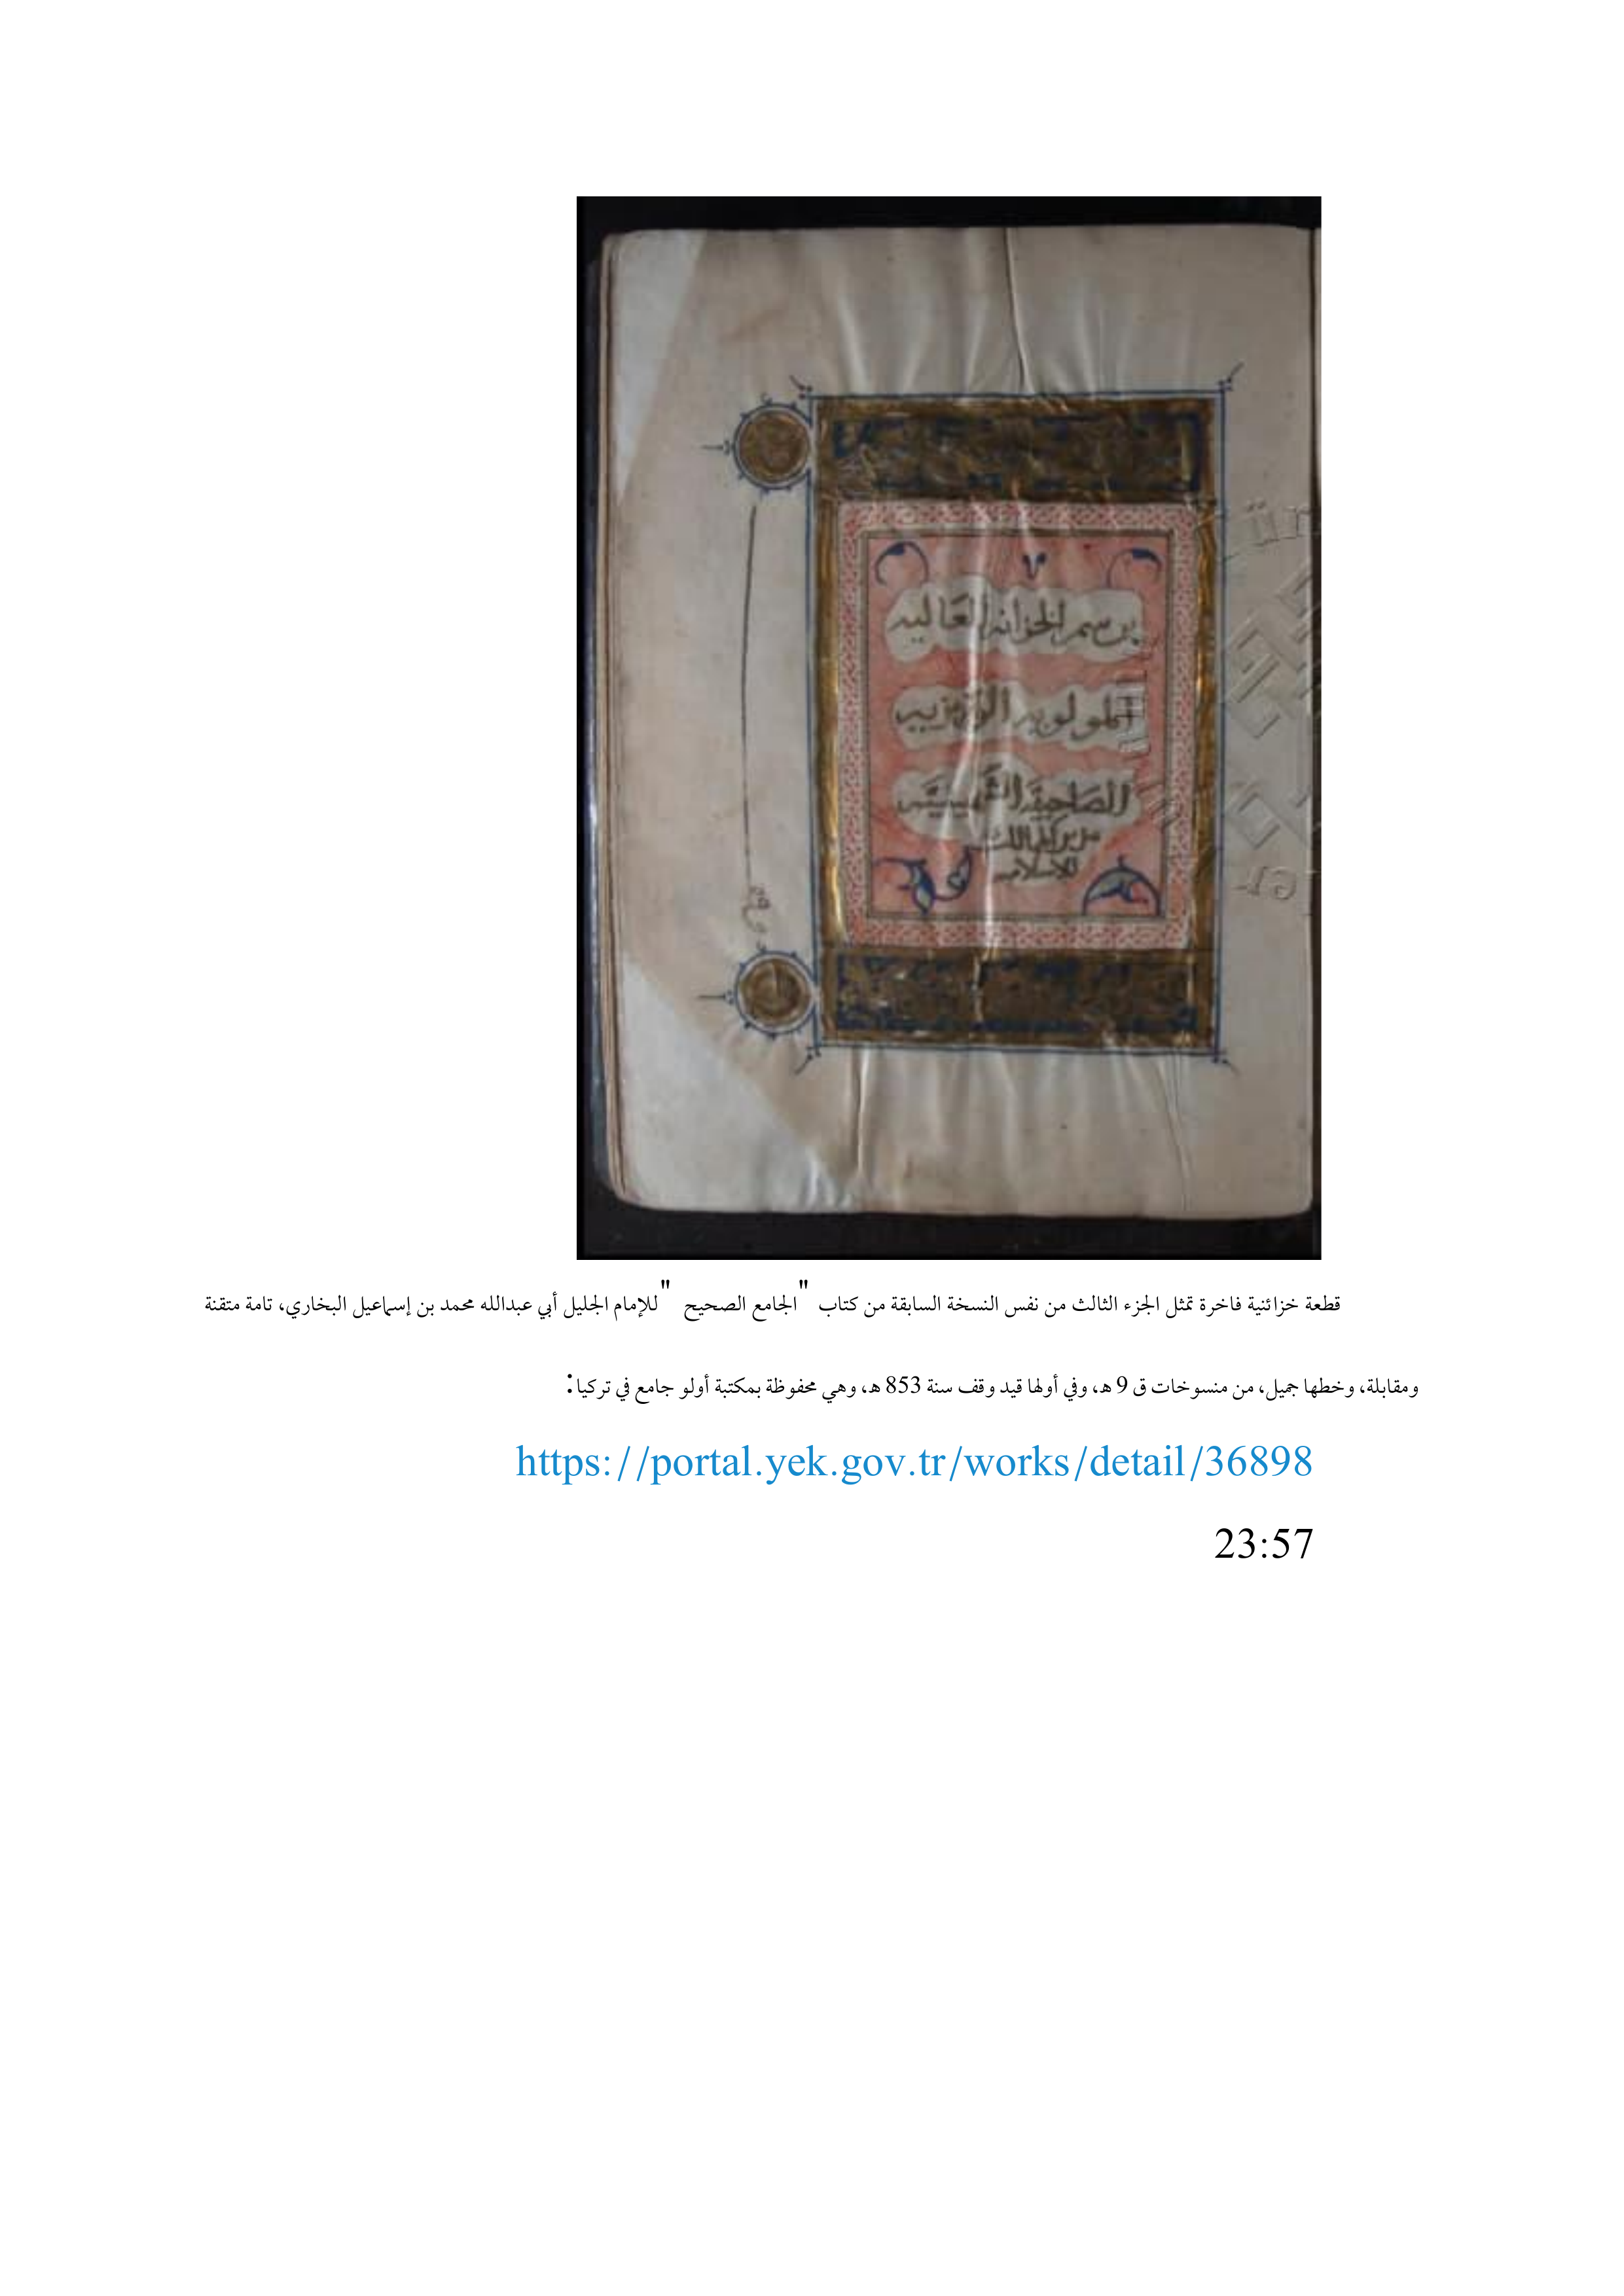 برسم الخزانه العاليه
المولويه الوزيريه
الصاحبيه الشمسيه
مدبر الممالك
الاسلاميه
قطعة خزائنية فاخرة تمثل الجزء الثالث من نفس النسخة السابقة من كتاب "الجامع الصحيح" للإمام الجليل أبي عبدالله محمد بن إسماعيل البخاري، تامة متقنة
ومقابلة، وخطها جميل، من منسوخات ق 9 هـ، وفي أولها قيد وقف سنة 853 هـ، وهي محفوظة بمكتبة أولو جامع في تركيا:
https://portal.yek.gov.tr/works/detail/36898
23:57